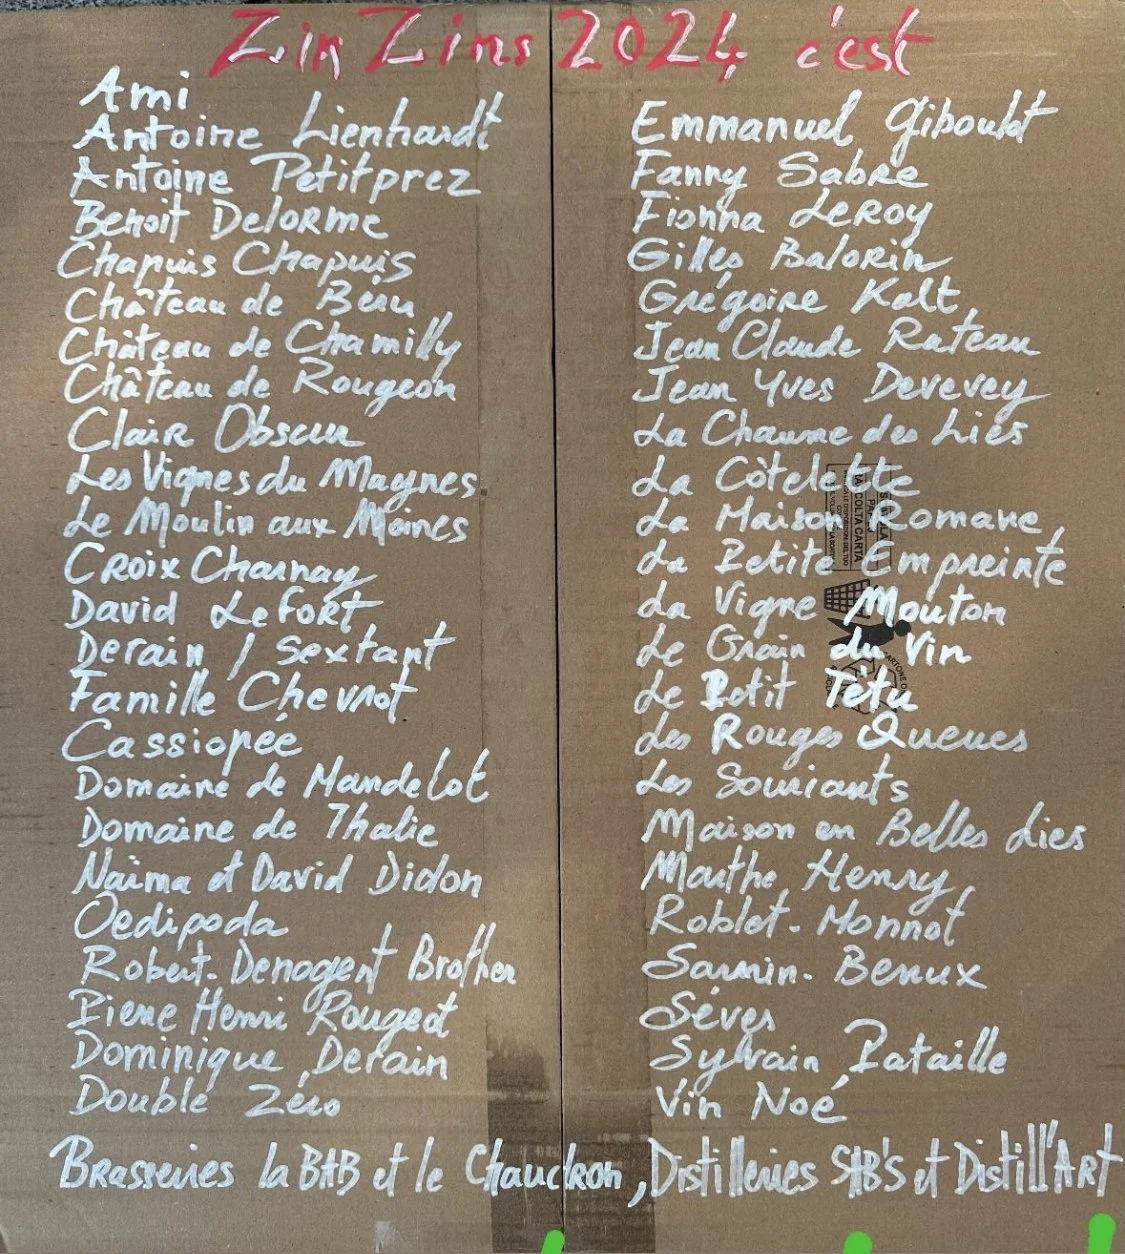 Zin Zins 2024 c'est
Ami
Antoine Lienhardt
Antoine Petitprez
Benoit Delorme
Chapuis Chapuis
Château de Béru
Château de Chamilly
Château de Rougeon
Clair Obscur
Les Vignes du Maynes
Le Moulin aux Moines
Croix Charnay
David Lefort
Derain / Sextant
Famille Chevrot
Cassiopée
Domaine de Mandelot
Domaine de Thalie
Naïma et David Didon
Oedipoda
Robert-Denogent Brother
Pierre Henri Rougeot
Dominique Derain
Double Zéro
Emmanuel Giboulot
Fanny Sabre
Fionna Leroy
Gilles Balorin
Grégoire Kalt
Jean Claude Rateau
Jean Yves Devevey
La Chaume des Lies
La Côtelette
La Maison Romane
La Petite Empreinte
La Vigne Mouton
Le Grain du Vin
Le Petit Têtu
Les Rouges Queues
Les Souriants
Maison en Belles Lies
Marthe Henry
Roblet-Monnot
Sarnin-Berrux
Sèves
Sylvain Pataille
Vin Noé
Brasseries la BAB et le Chaudron, Distilleries SAB'S et Distill'ART
RACCOLTA CARTA